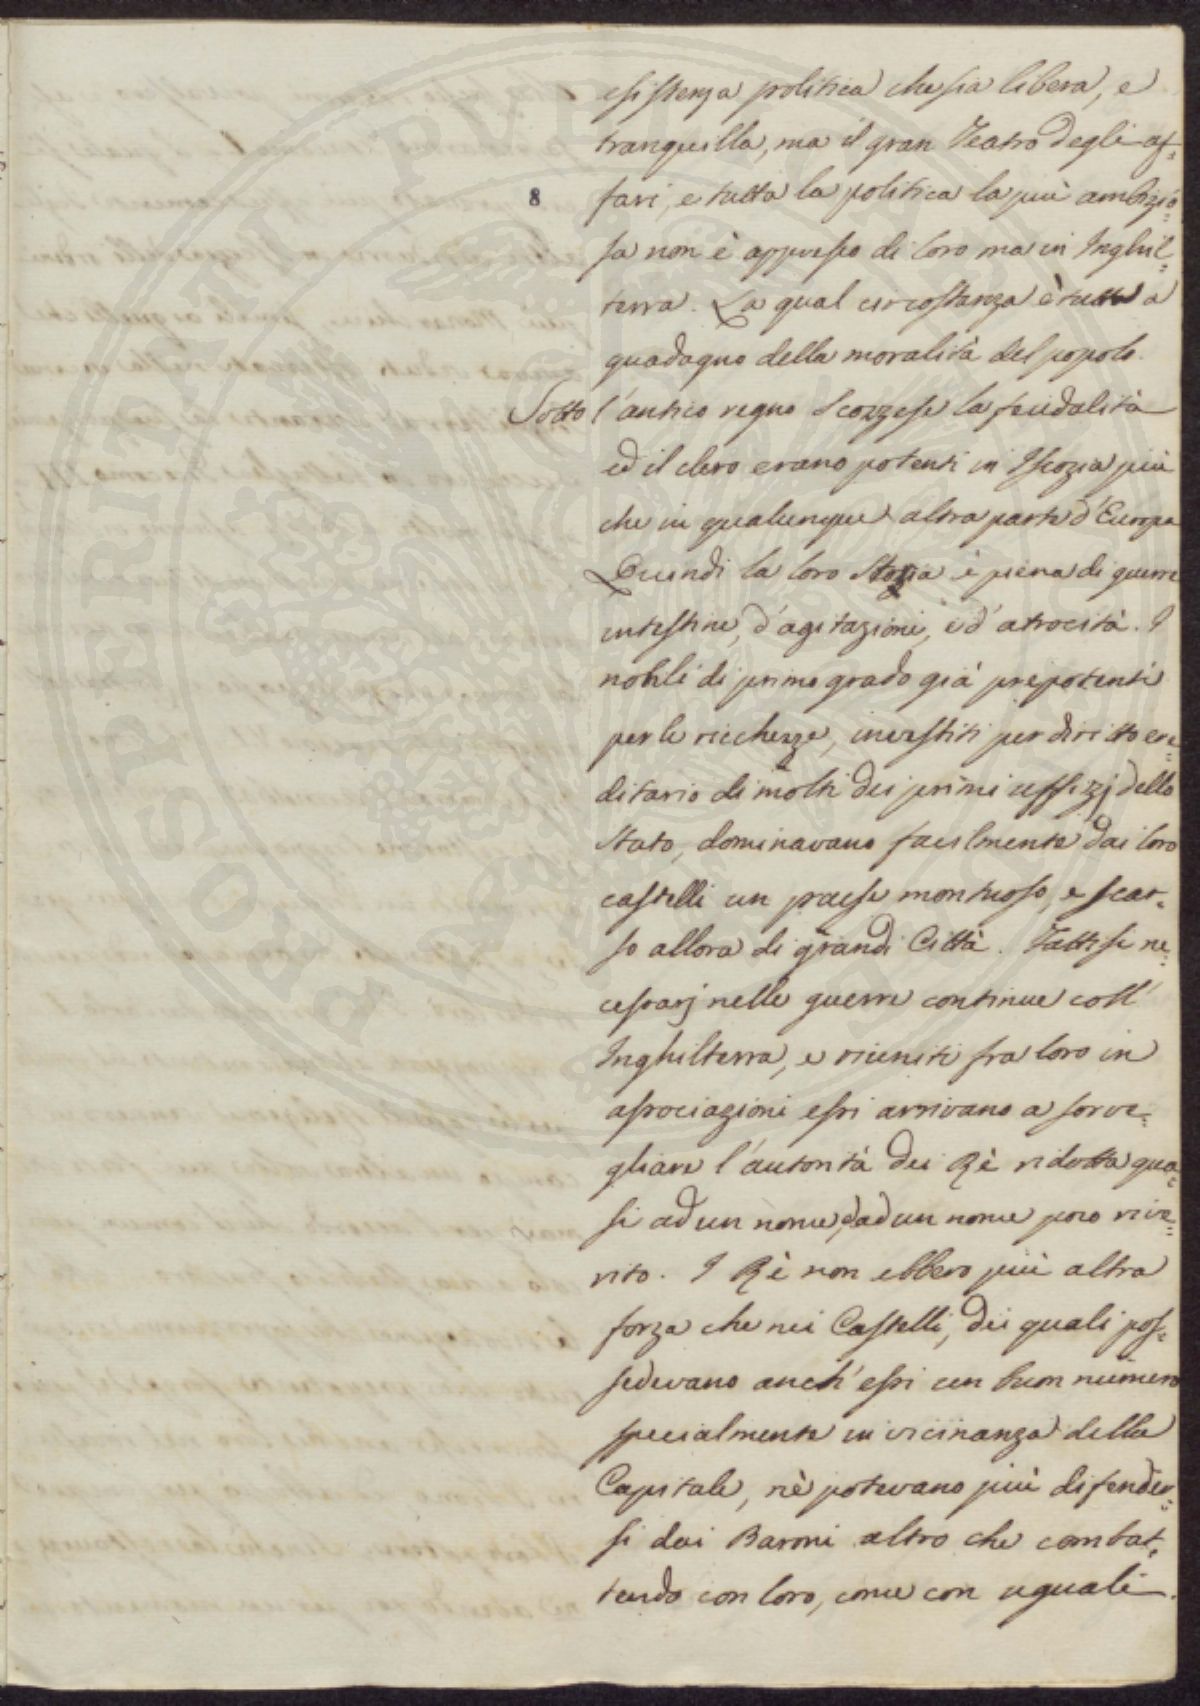 esistenza politica che sia libera, e
tranquilla, ma il gran Teatro degli af=
8
fari, e tutta la politica la più ambizio=
sa non è appresso di loro ma in Inghil=
terra. La qual circostanza è tutta a
guadagno della moralità del popolo.
Sotto l'antico regno Scozzese la feudalità
ed il clero erano potenti in Iscozia più
che in qualunque altra parte d'Europa
Quindi la loro Storia è piena di guerre
intestine, d'agitazioni, e d'atrocità. I
nobili di primo grado già prepotenti
per le ricchezze, investiti per diritto ere=
ditario di molti dei primi uffizj dello
Stato, dominavano facilmente dai loro
castelli un paese montuoso, e scar=
so allora di grandi Città. Fattisi ne=
cessarj nelle guerre continue coll'
Inghilterra, e riuniti fra loro in
associazioni essi arrivano a sorve=
gliare l'autorità dei Rè ridotta qua=
si ad un nome, ad un nome poco rive=
rito. I Rè non ebbero più altra
forza che nei Castelli, dei quali pos=
sedevano anch'essi un buon numero
specialmente in vicinanza della
Capitale, nè potevano più difender=
si dai Baroni altro che combat=
tendo con loro, come con uguali.
POSTERITATI
PVBLI